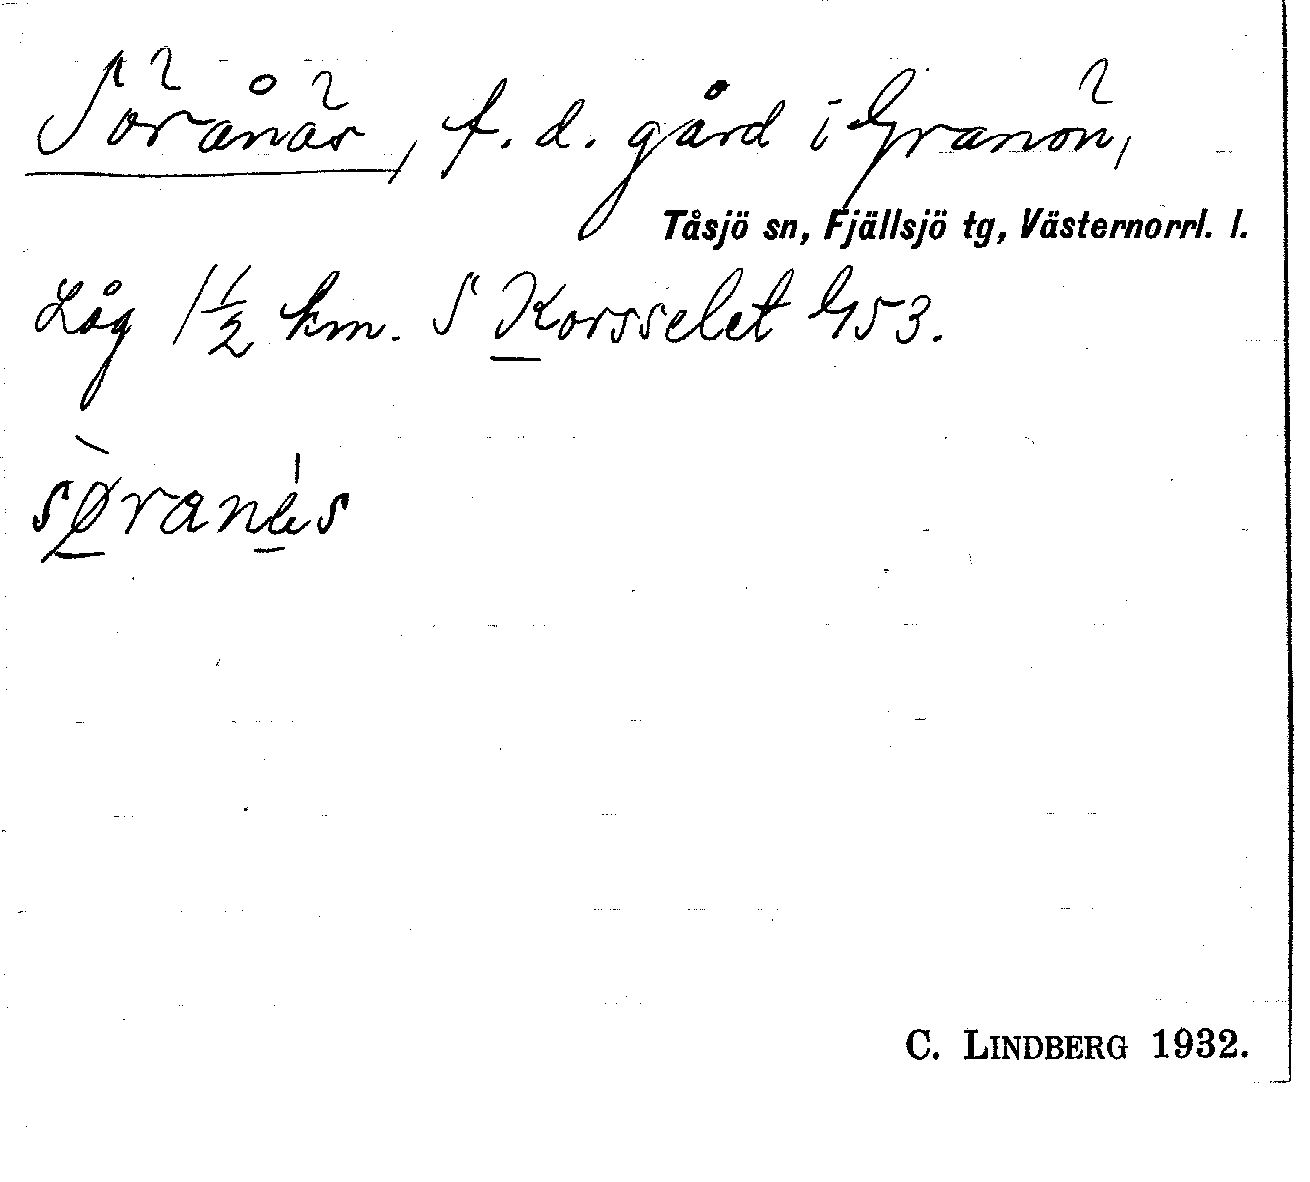 Sörånäs, f. d. gård i Granön,
Tåsjö sn, Fjällsjö tg, Västernorrl. l.
Låg 1½ km. S Korsselet G 53.
sø̀ranä́s
C. LINDBERG 1932.